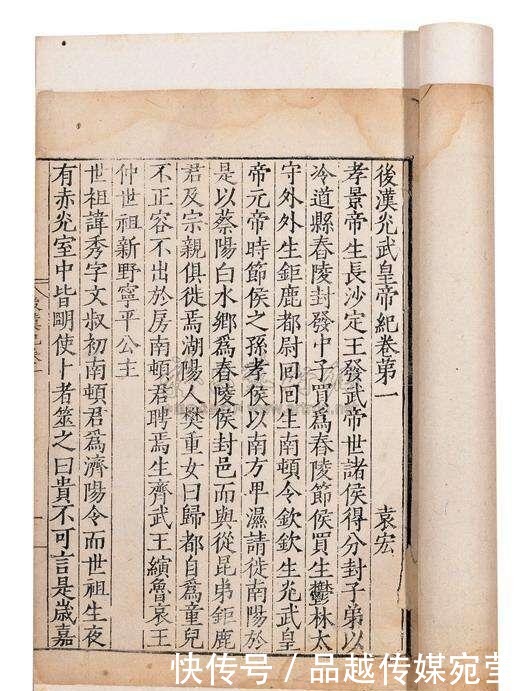 後漢光武皇帝紀卷第一 袁宏
孝景帝生長沙定王發武帝世諸侯得分封子弟以
泠道縣舂陵封發中子買爲舂陵節侯買生鬱林太
守外外生鉅鹿都尉囘囘生南頓令欽欽生光武皇
帝元帝時節侯之孫孝侯以南方卑濕請徙南陽於
是以蔡陽白水鄉爲舂陵侯封邑而與從昆弟鉅鹿
君及宗親俱徙焉湖陽人樊重女曰歸都自爲童兒
不正容不出於房南頓君聘焉生齊武王縯魯哀王
仲世祖新野寧平公主
世祖諱秀字文叔初南頓君爲濟陽令而世祖生夜
有赤光室中皆明使卜者筮之曰貴不可言是歲嘉
快传号 / 品越传媒宛莹